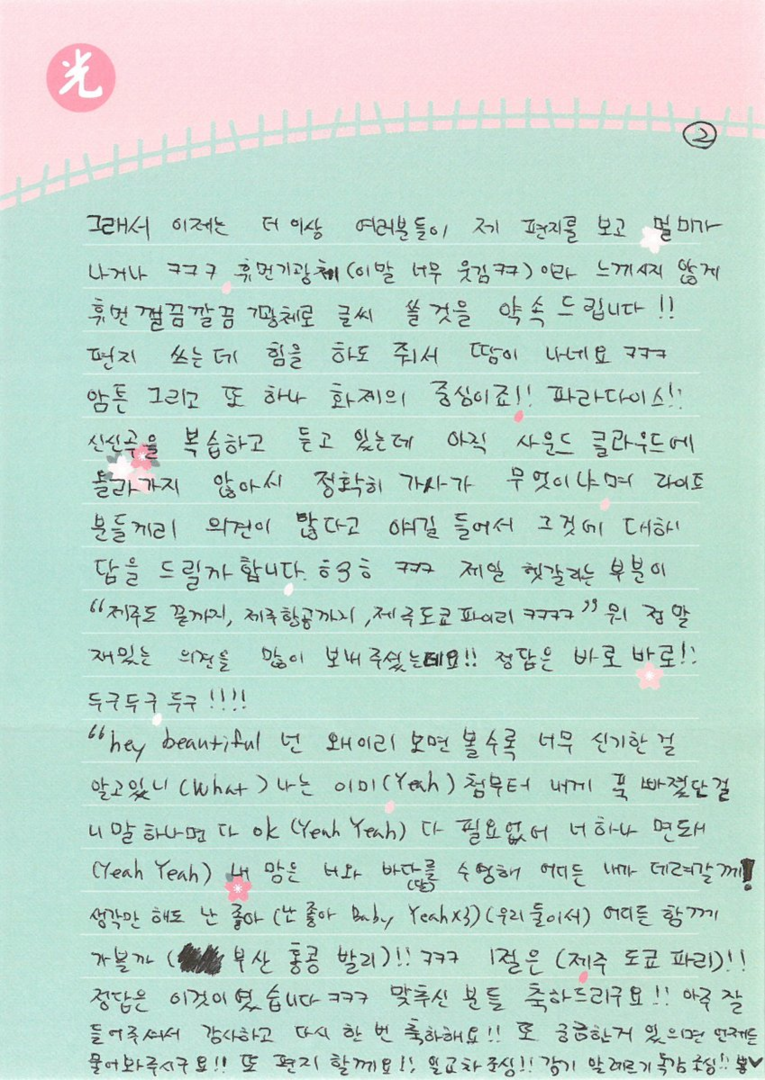 光
②
그래서 이제는 더 이상 여러분들이 제 편지를 보고 멀미가
나거나 ㅋㅋㅋ 휴먼기광체 (이말 너무 웃김ㅋㅋ) 이라 느끼시지 않게
휴먼 껄끔깔끔 기광체로 글씨 쓸 것을 약속 드립니다 !!
편지 쓰는데 힘을 하도 줘서 땀이 나네요 ㅋㅋㅋ
암튼 그리고 또 하나 화제의 중심이죠!! 파라다이스!!
신신곡을 복습하고 듣고 있는데 아직 사운드 클라우드에
올라가지 않아서 정확히 가사가 무엇이냐며 라이트
분들께서 의견이 많다고 얘길 들어서 그것에 대해
답을 드릴까 합니다. ㅎ3ㅎ ㅋㅋㅋ 제일 헷갈리는 부분이
“제주도 끝까지, 제주항공까지, 제주도쿄파이리 ㅋㅋㅋㅋ” 뭐 정말
재밌는 의견을 많이 보내주셨는데요!! 정답은 바로 바로!!
두구두구 두구 !!!!
“hey beautiful 넌 왜이리 보면 볼수록 너무 신기한 걸
알고있니 (What) 나는 이미 (Yeah) 첨부터 네게 푹 빠졌단걸
니 말 하나면 다 ok (Yeah Yeah) 다 필요없어 너 하나 면돼
(Yeah Yeah) 내 맘은 너와 바다를 수영해 어디든 내가 데려갈게!
(달)
생각만 해도 난 좋아 (난 좋아 Baby Yeah x3) (우리 둘이서) 어디든 함께
가볼까 ( 부산 홍콩 발리)!! ㅋㅋㅋ 1절은 (제주 도쿄 파리)!!
정답은 이것이 였습니다 ㅋㅋㅋ 맞추신 분들 축하드리구요!! 아주 잘
들어주셔서 감사하고 다시 한 번 축하해요!! 또 궁금한게 있으면 언제든
물어봐주시구요!! 또 편지 할께요!! 일교차 조심!! 감기 알레르기 독감 조심!! 뿅♥